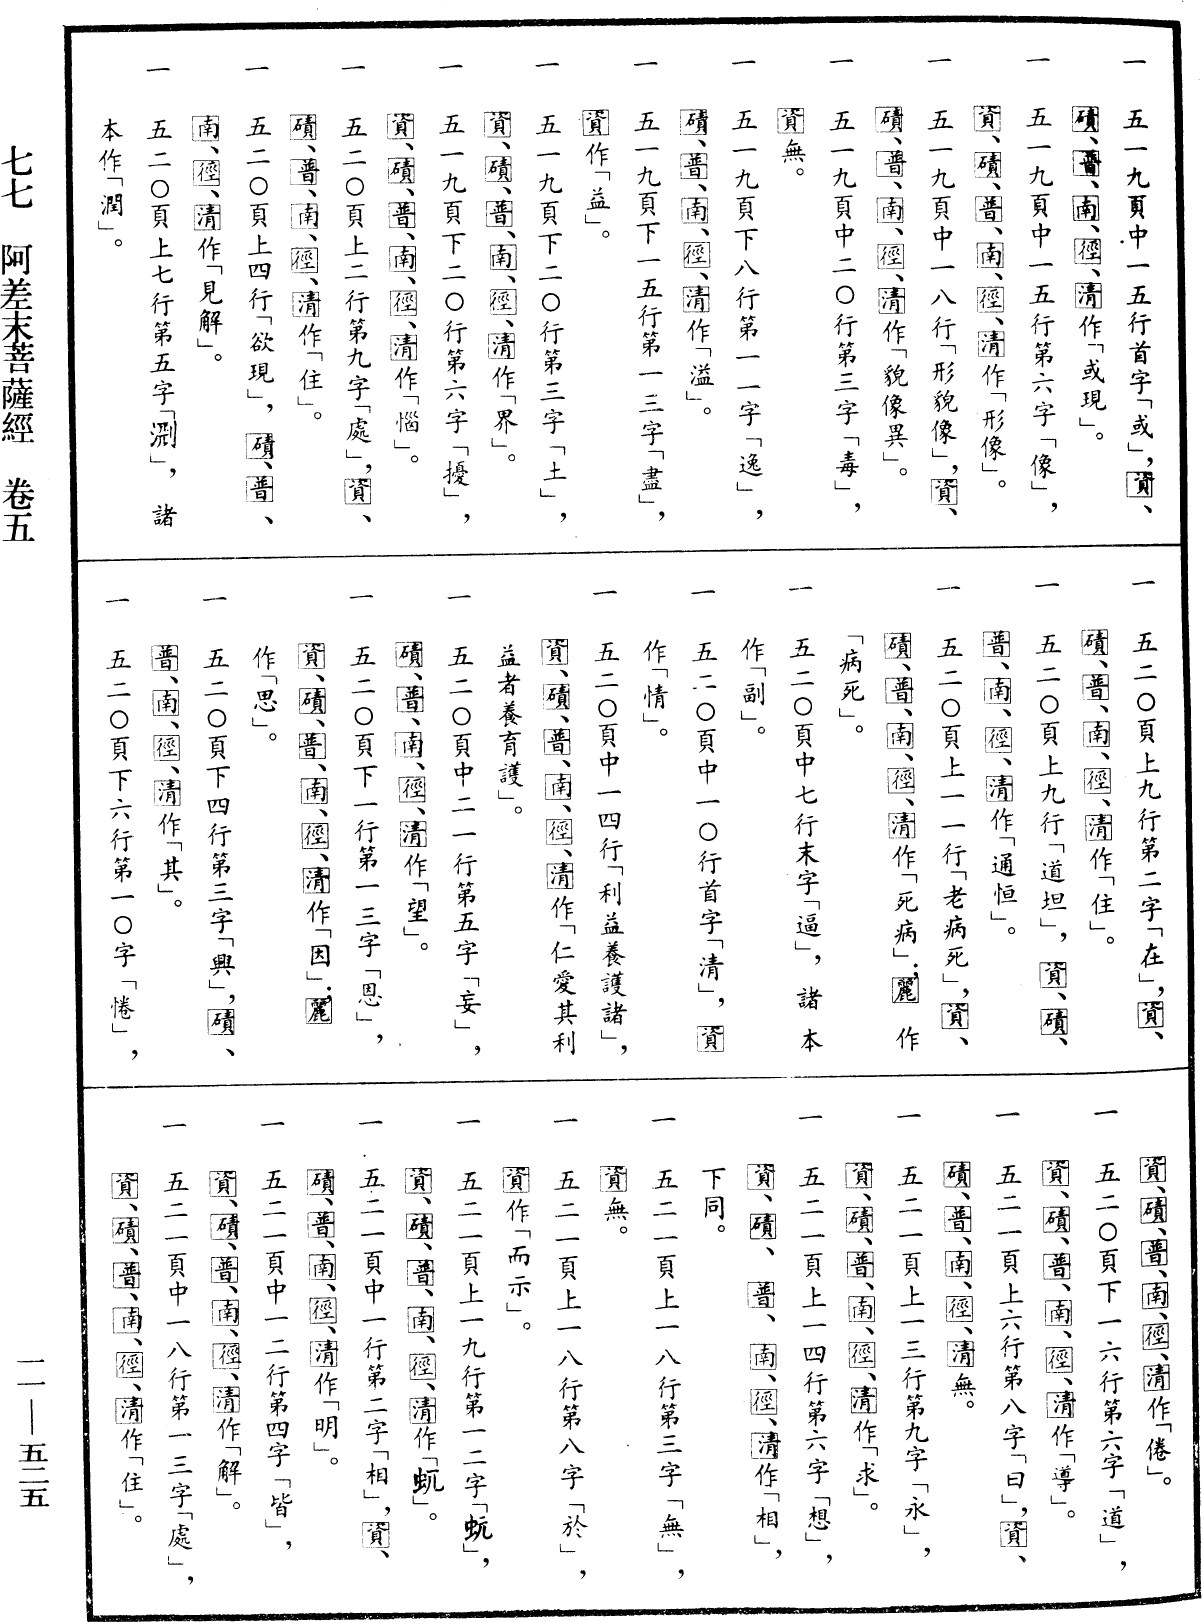 一　五一九頁中一五行首字「或」，資、
磧、普、南、徑、清作「或現」。
一　五一九頁中一五行第六字「像」，
資、磧、普、南、徑、清作「形像」。
一　五一九頁中一八行「形貌像」，資、
磧、普、南、徑、清作「貌像異」。
一　五一九頁中二〇行第三字「毒」，
資無。
一　五一九頁下八行第一一字「逸」，
磧、普、南、徑、清作「溢」。
一　五一九頁下一五行第一三字「盡」，
資作「益」。
一　五一九頁下二〇行第三字「土」，
資、磧、普、南、徑、清作「界」。
一　五一九頁下二〇行第六字「擾」，
資、磧、普、南、徑、清作「惱」。
一　五二〇頁上二行第九字「處」，資、
磧、普、南、徑、清作「住」。
一　五二〇頁上四行「欲現」，磧、普、
南、徑、清作「見解」。
一　五二〇頁上七行第五字「渆」，諸
本作「潤」。
一　五二〇頁上九行第二字「在」，資、
磧、普、南、徑、清作「住」。
一　五二〇頁上九行「道坦」，資、磧、
普、南、徑、清作「通恒」。
一　五二〇頁上一一行「老病死」，資、
磧、普、南、徑、清作「死病」；麗作
「病死」。
一　五二〇頁中七行末字「逼」，諸本
作「副」。
一　五二〇頁中一〇行首字「清」，資
作「情」。
一　五二〇頁中一四行「利益養護諸」，
資、磧、普、南、徑、清作「仁愛其利
益者養育護」。
一　五二〇頁中二一行第五字「妄」，
磧、普、南、徑、清作「望」。
一　五二〇頁下一行第一三字「恩」，
資、磧、普、南、徑、清作「因」；麗
作「思」。
一　五二〇頁下四行第三字「興」，磧、
普、南、徑、清作「其」。
一　五二〇頁下六行第一〇字「惓」，
資、磧、普、南、徑、清作「倦」。
一　五二〇頁下一六行第六字「道」，
資、磧、普、南、徑、清作「導」。
一　五二一頁上六行第八字「曰」，資、
磧、普、南、徑、清無。
一　五二一頁上一三行第九字「永」，
資、磧、普、南、徑、清作「求」。
一　五二一頁上一四行第六字「想」，
資、磧、普、南、徑、清作「相」，
下同。
一　五二一頁上一八行第三字「無」，
資無。
一　五二一頁上一八行第八字「於」，
資作「而示」。
一　五二一頁上一九行第一二字「蚖」，
資、磧、普、南、徑、清作「蚖」。
一　五二一頁中一行第二字「相」，資、
磧、普、南、徑、清作「明」。
一　五二一頁中一二行第四字「皆」，
資、磧、普、南、徑、清作「解」。
一　五二一頁中一八行第一三字「處」，
資、磧、普、南、徑、清作「住」。
七七　阿差末菩薩經　卷五
一一——五二五